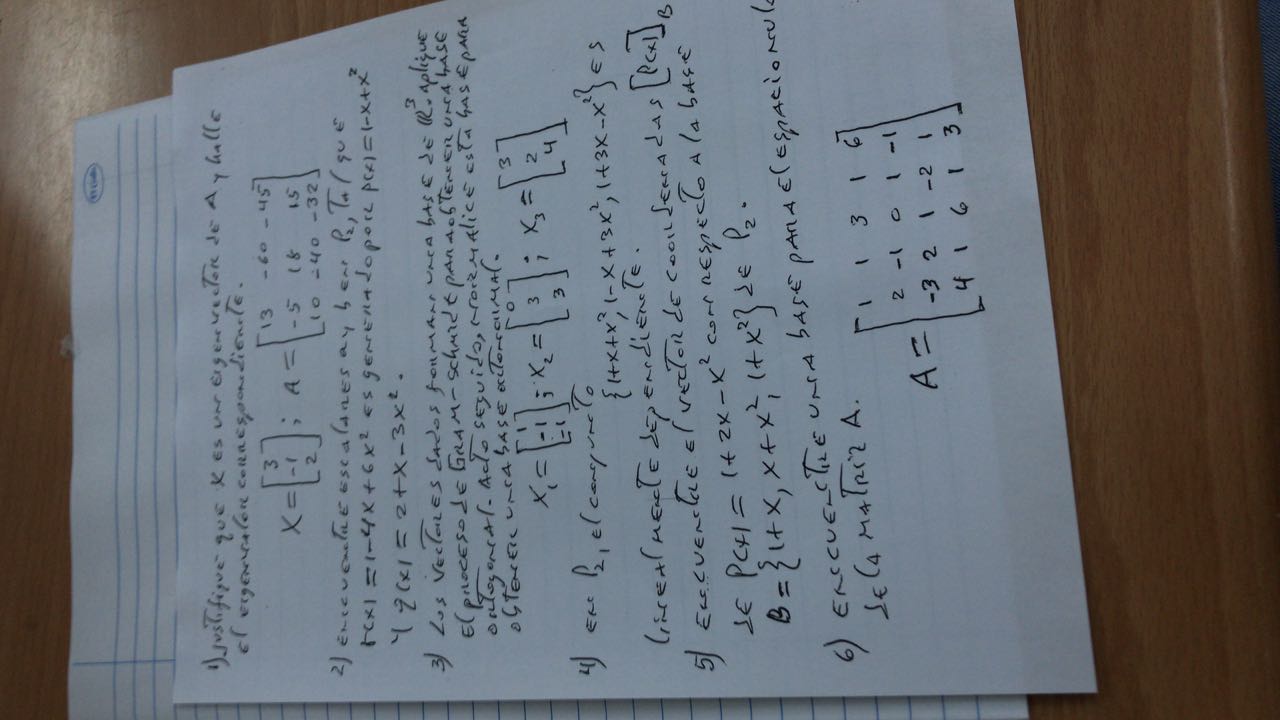 1) Justifique que X es un eigenvector de A y halle
el eigenvalor correspondiente.
X = [3 -1 2] ; A = [13 -60 -45
-5 18 15
10 -40 -32]
2) encuentre escalares a y b en P2, Tal que
r(x) = 1-4x+6x² es generado por p(x) = 1-x+x²
y q(x) = 2+x-3x².
3) Los vectores dados forman una base de R³. Aplique
el proceso de GRAM-schmidt para obtener una base
ortogonal. Acto seguido, normalice esta base para
obtener una base ortonormal.
X1 = [1 -1 -1] ; X2 = [0 3 3] ; X3 = [3 2 4]
4) en P2, el conjunto
{1+x+x², 1-x+3x², 1+3x-x²} es
linealmente dependiente.
5) encuentre el vector de coordenadas [P(x)]B
de P(x) = 1+2x-x² con respecto a la base
B = {1+x, x+x², 1+x²} de P2.
6) encuentre una base para el espacio nulo
de la MATRIZ A.
A = [1 1 3 1 6
2 -1 0 1 -1
-3 2 1 -2 1
4 1 6 1 3]